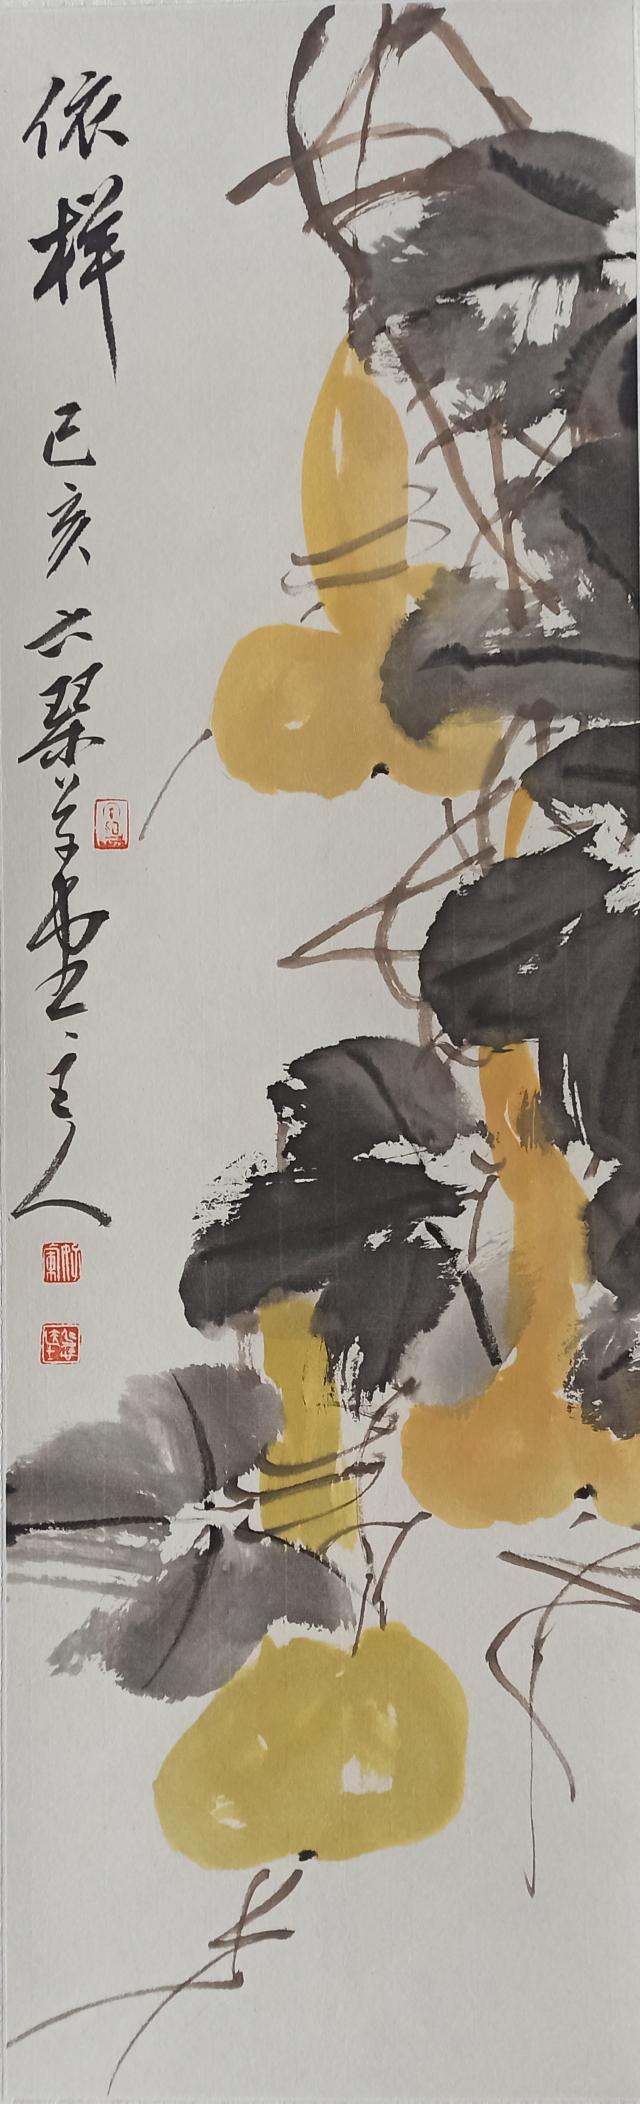 依样
己亥六琴草堂主人